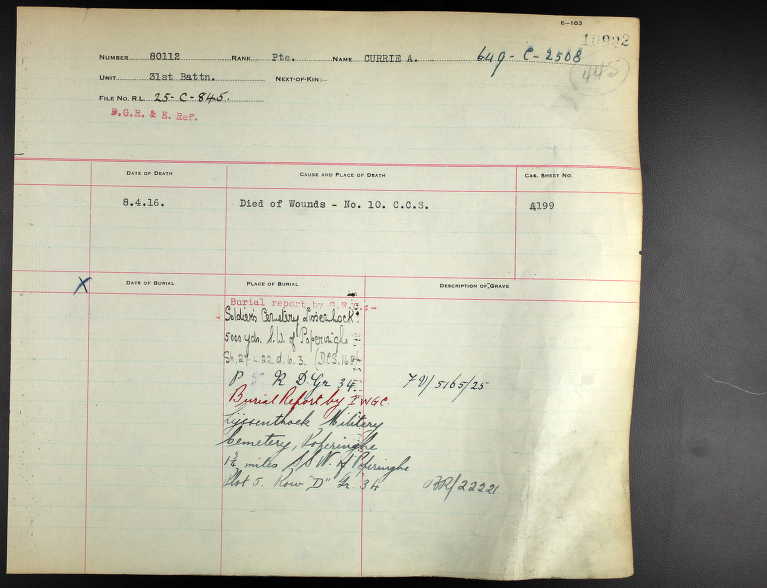 E-103
NUMBER 80112 RANK Pte. NAME CURRIE A. 649-C-2508
445
UNIT 31st Battn. NEXT-OF-KIN
FILE NO. R.L. 25-C-845.
D.G.R. & E. Ref.
DATE OF DEATH CAUSE AND PLACE OF DEATH CAS. SHEET NO.
8.4.16. Died of Wounds - No. 10. C.C.S. A199
X DATE OF BURIAL PLACE OF BURIAL DESCRIPTION OF GRAVE
Burial report by
Soldiers Cemetery Lissenhock
5000 yds. S.W. of Poperinghe
Sh. 27 L. 22 d. 6. 3.
P 5 R D Gr 34.
Burial Report by I.W.G.C.
Lijssenthoek Military
Cemetery, Poperinghe
1¾ miles S.S.W. of Poperinghe
Plot 5. Row "D" Gr. 34 BR/22221